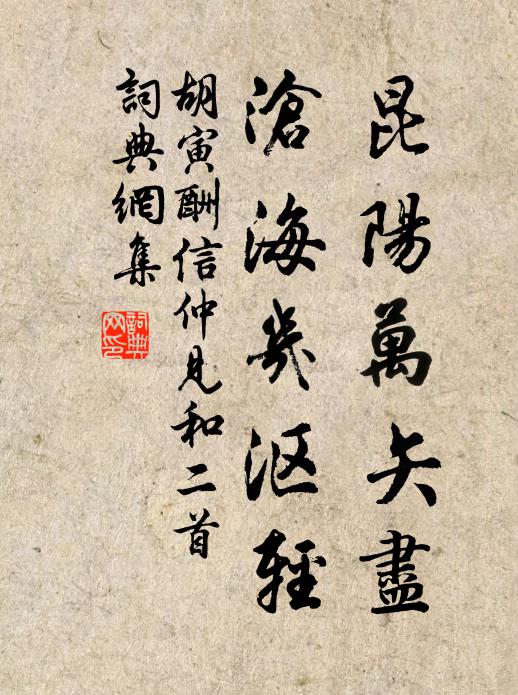 昆陽萬矢盡
滄海幾漚輕
胡寅酬信仲見和二首
詞典網集
詞典
网印